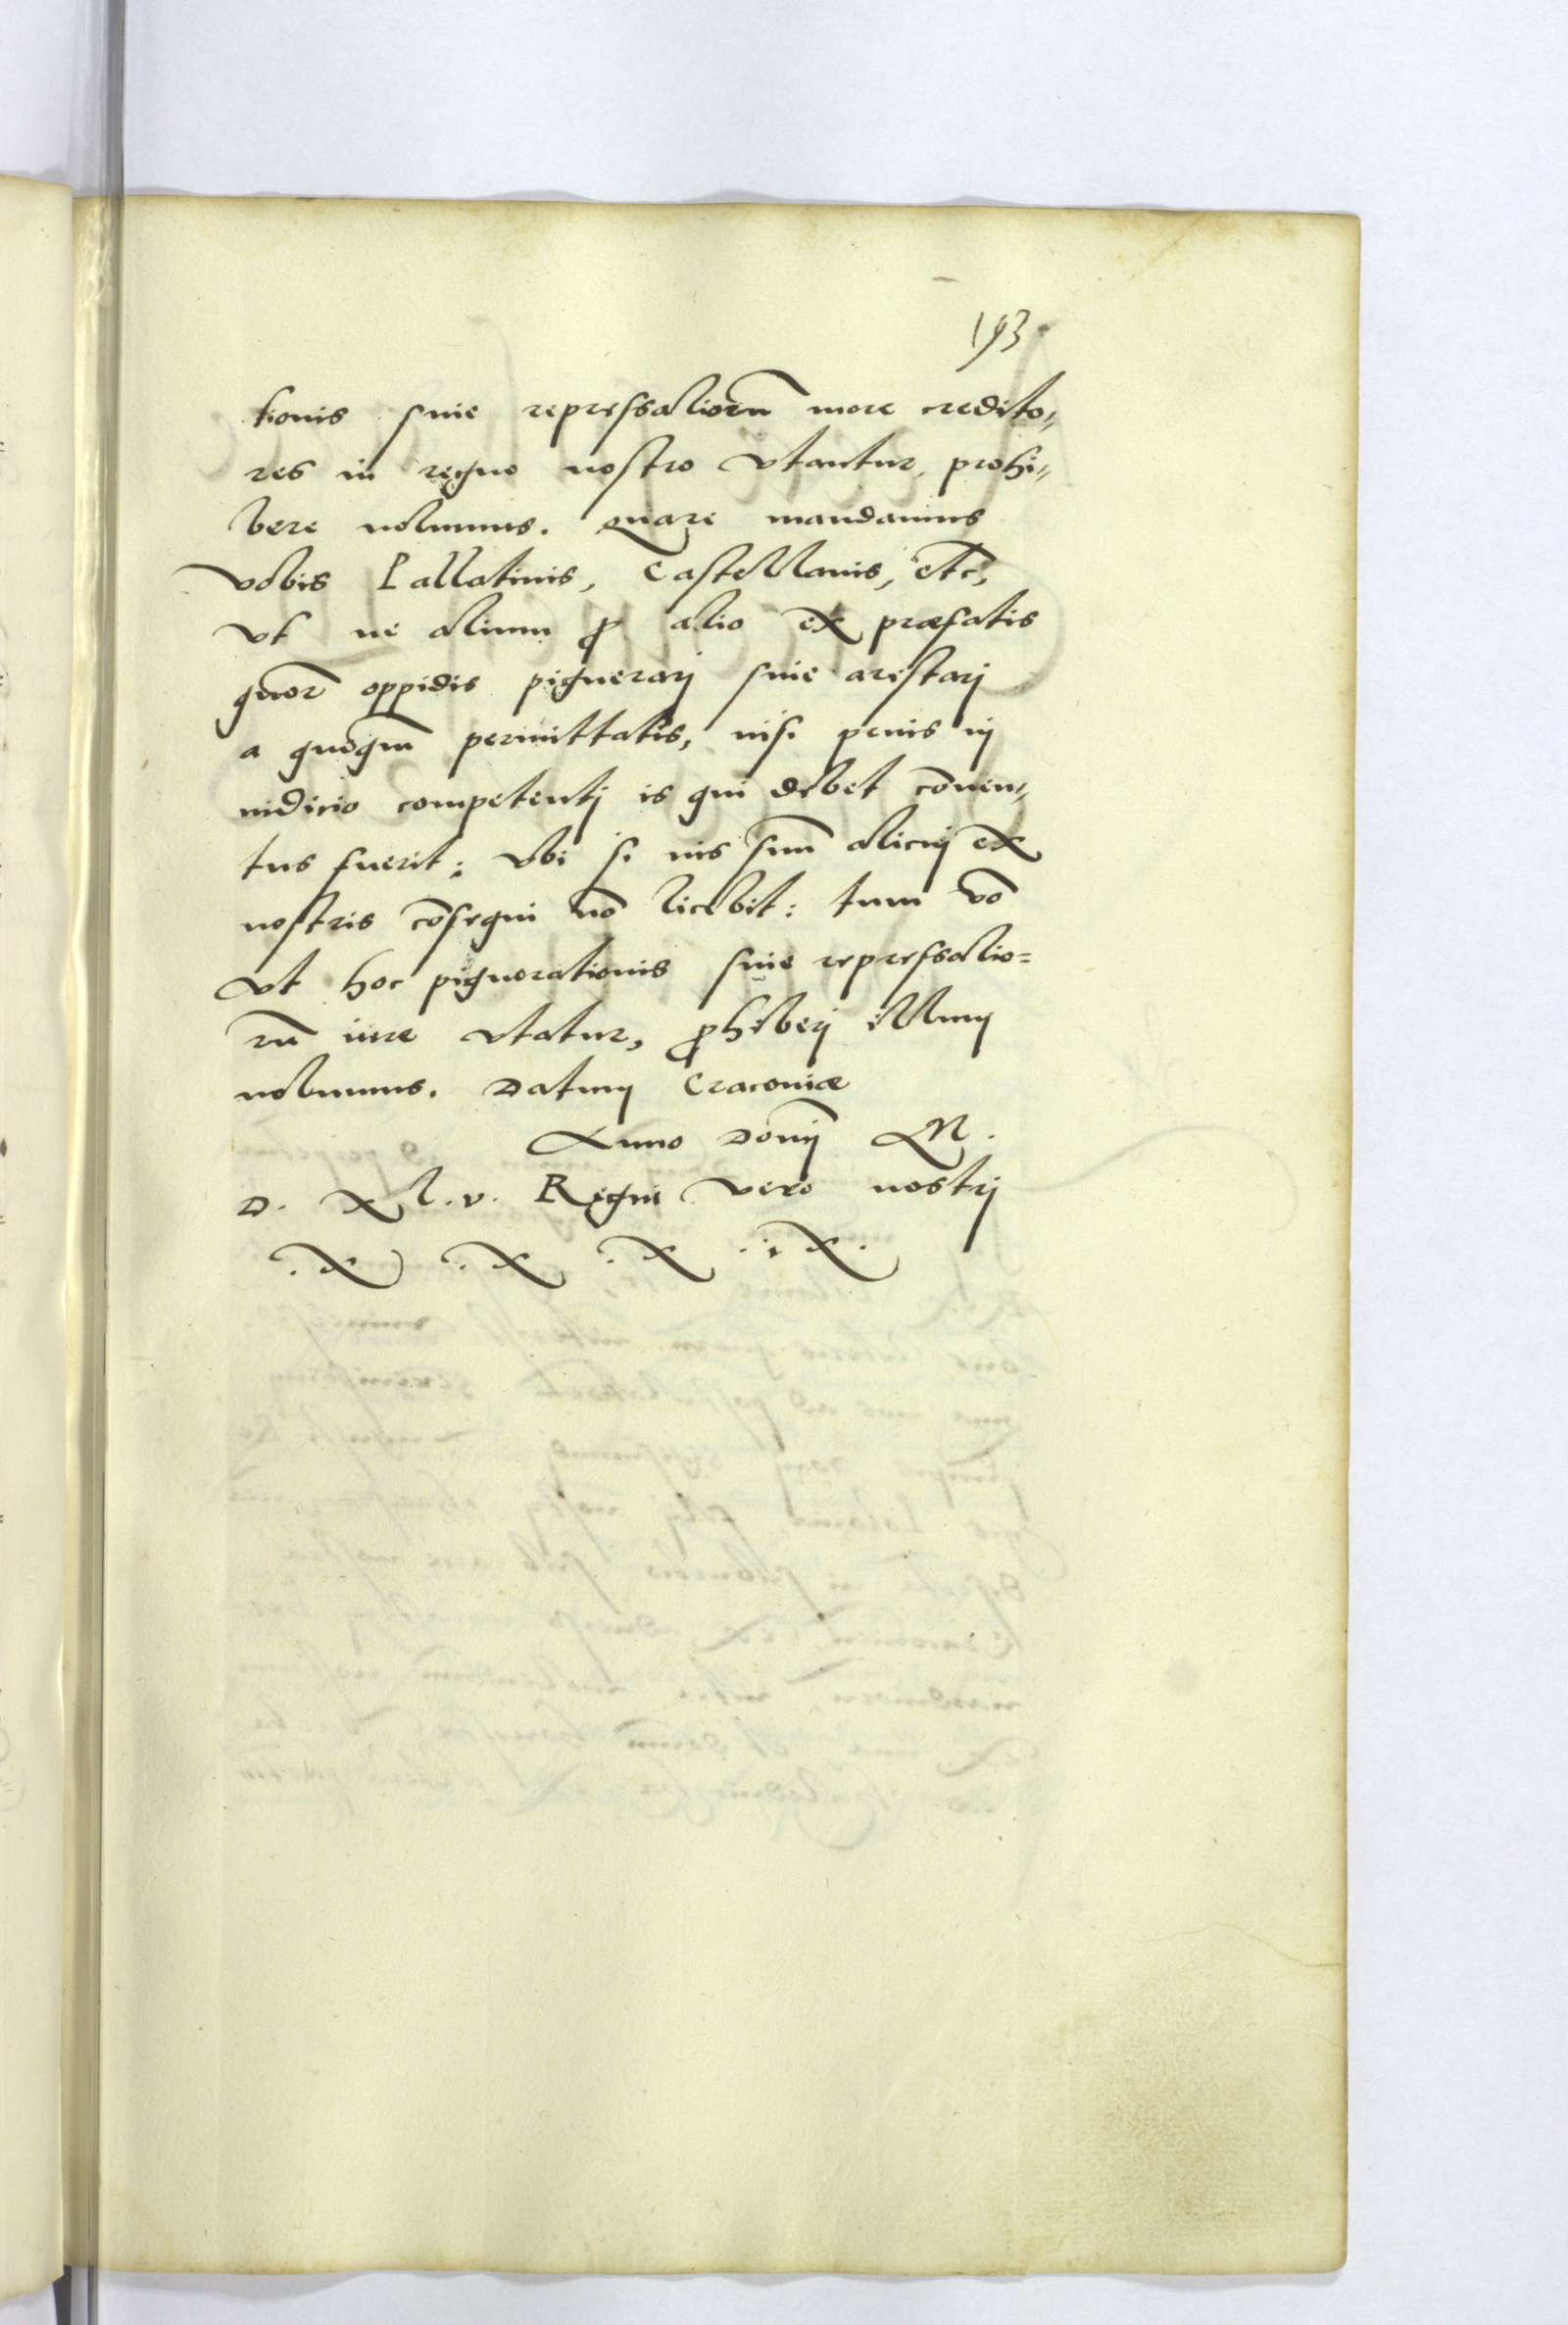 193
tionis siue repressaliorũ more credito„
res in regno nostro vtantur, prohi„
bere nolumus. Quare mandamus
vobis Pallatinis, Castellanis, etc̃,
vt ne alium ꝓ alio ex præfatis
quor̃ oppidis pignerarj siue arestarj
a quoquã permittatis, nisi prius in
iudicio competentj is qui debet cõuen„
tus fuerit; vbi si ius suũ alicuj ex
nostris cõsequi nõ licebit: tum võ
vt hoc pignorationis siue repressalio=
rũ iure vtatur, ꝓhiberj illum
nolumus. Datum Cracouiæ
Anno Domj̃ M.
D. Xl.v. Regni vero nostrj
.X .X .X .i X.